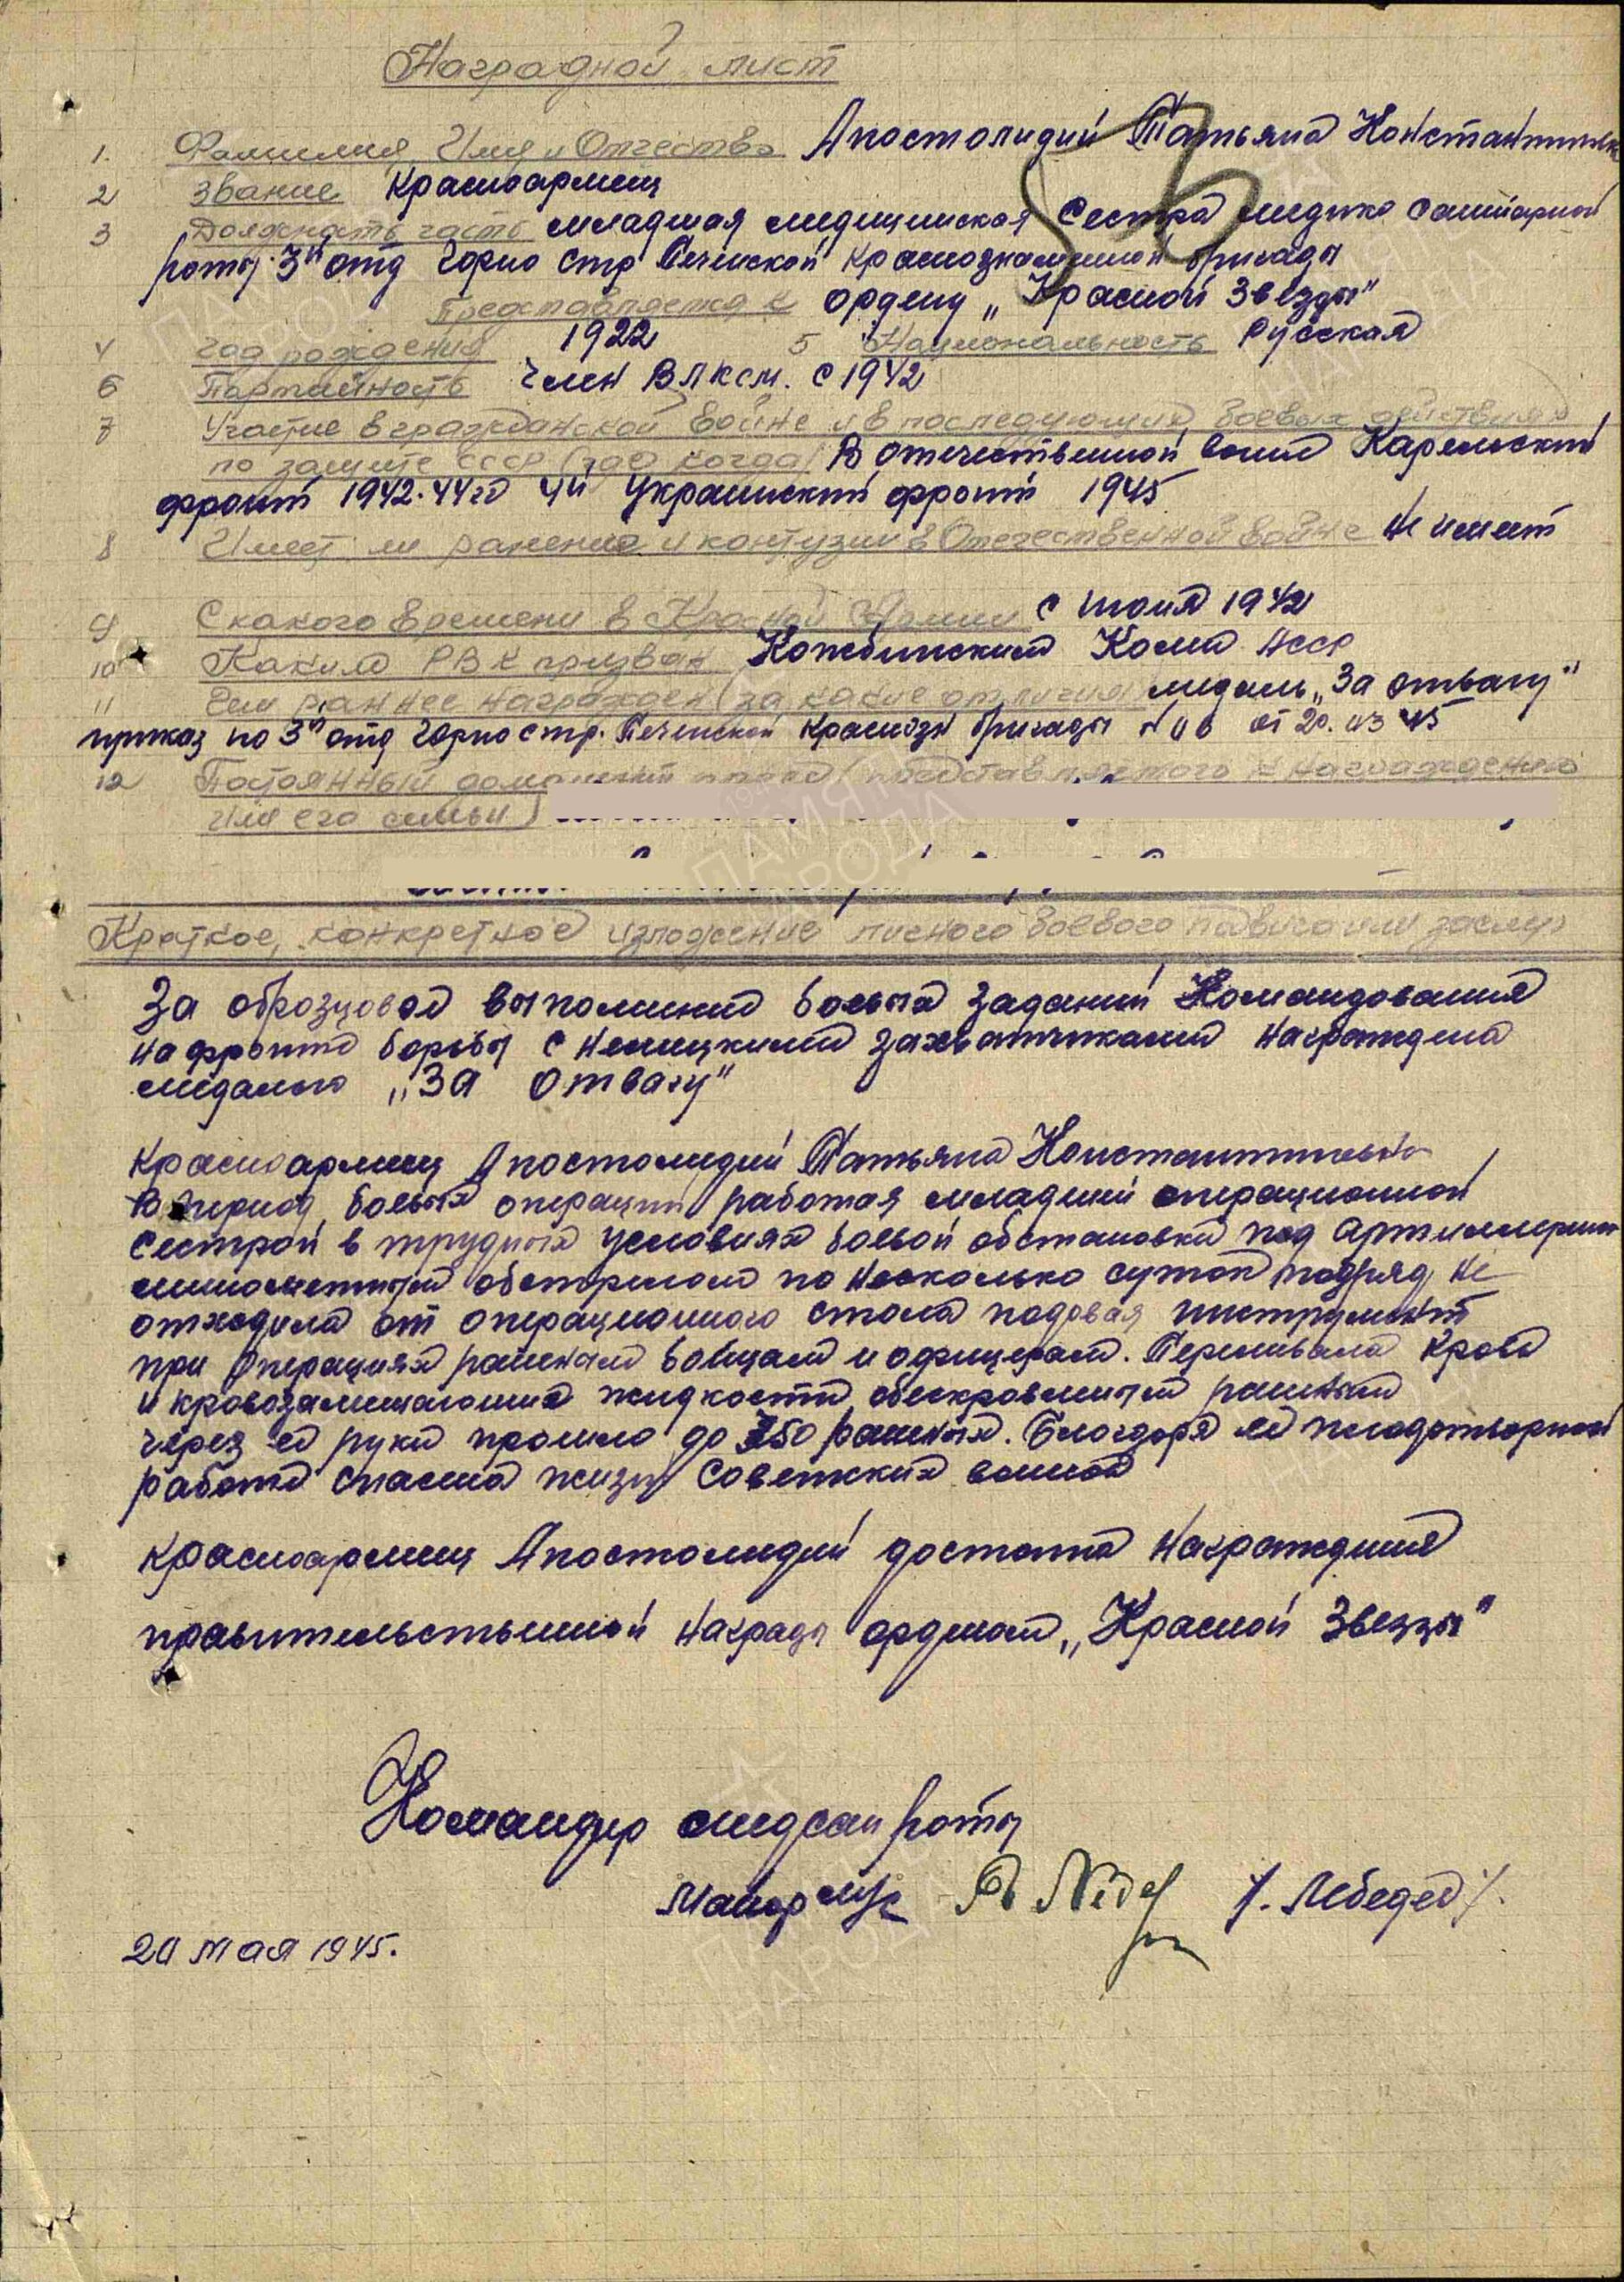 Наградной лист
1. Фамилия, Имя и Отчество Апостолидий Татьяна Константиновна
2 Звание Красноармеец
3 Должность часть младшая медицинская Сестра медико санитарной
роты 3й отд Горно Стр Печенской Краснознаменной бригады
Представляется к ордену „Красной Звезды"
4 год рождения 1922 5 Национальность Русская
6 Партийность член ВЛКСМ. с 1942
7 Участие в гражданской войне и в последующих боевых действиях
по защите СССР (где когда) В отечественной войне Карельский
фронт 1942.44гг 4й Украинский фронт 1945
8 Имеет ли ранения и контузии в Отечественной войне Не имеет
9 С какого времени в Красной Армии с июня 1942
10 Каким РВК призван Кожвинским Коми АССР
11 Чем раннее награжден (за какие отличия) медаль „За отвагу"
приказ по 3й отд Горно стр. Печенской Краснозн бригады от 20.03 45
12 Постоянный домашний представляемого к награждению
или его семьи)
Краткое, конкретное изложение личного боевого подвига или заслуг
За образцовое выполнение боевых заданий Командования
на фронте борьбы с немецкими захватчиками награждена
медалью „За Отвагу"
Красноармеец Апостолидий Татьяна Константиновна
В период боевых операции работая младшей операционной
Сестрой в трудных условиях боевой обстановки под артиллерийск
минометным обстрелом по несколько суток подряд не
отходила от операционного стола подовая инструмент
при операциях раненым бойцам и офицерам. Переливала кровь
и кровозамещающие жидкости обескровленным раненым
через её руки прошло до 350 раненых. Благодоря её плодотворной
работе спасена жизнь Советских воинов
Красноармеец Апостолидий достойна награждения
правительственной награды орденом „Красной Звезды"
Командир медсан роты
Майор м/с /. Лебедев /.
20 мая 1945.
ПАМЯТЬ
НАРОДА